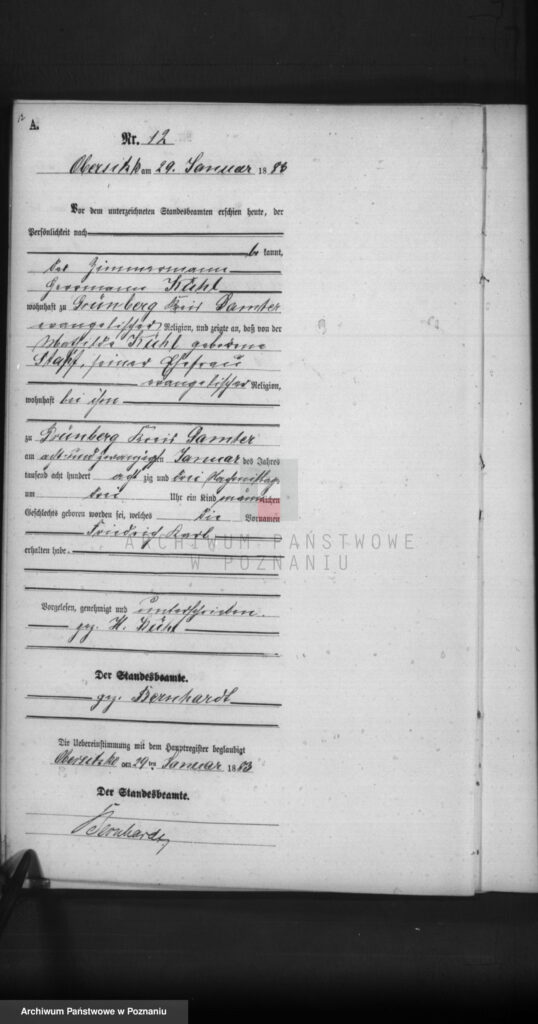 12
A.
Nr. 12
Obersitzko am 29. Januar 1883
Vor dem unterzeichneten Standesbeamten erschien heute, der
Persönlichkeit nach
be kannt,
der Zimmermann
Herrmann Kühl
wohnhaft zu Grünberg Kreis Samter
evangelischer Religion, und zeigte an, daß von der
Mathilde Kühl geborene
seiner Ehefrau
evangelischer Religion,
wohnhaft bei ihm
zu Grünberg Kreis Samter
am achtundzwanzigsten Januar des Jahres
tausend acht hundert achtzig und drei Nachmittags
um drei Uhr ein Kind männlichen
Geschlechts geboren worden sei, welches die Vornamen
Friedrich Karl
erhalten habe.
Vorgelesen, genehmigt und unterschrieben.
gez. H. Kühl
Der Standesbeamte.
gez. Bernhardt
Die Uebereinstimmung mit dem Hauptregister beglaubigt
Obersitzko am 29ten Januar 1883
Der Standesbeamte.
Bernhardt
ARCHIWUM PAŃSTWOWE
W POZNANIU
Archiwum Państwowe w Poznaniu